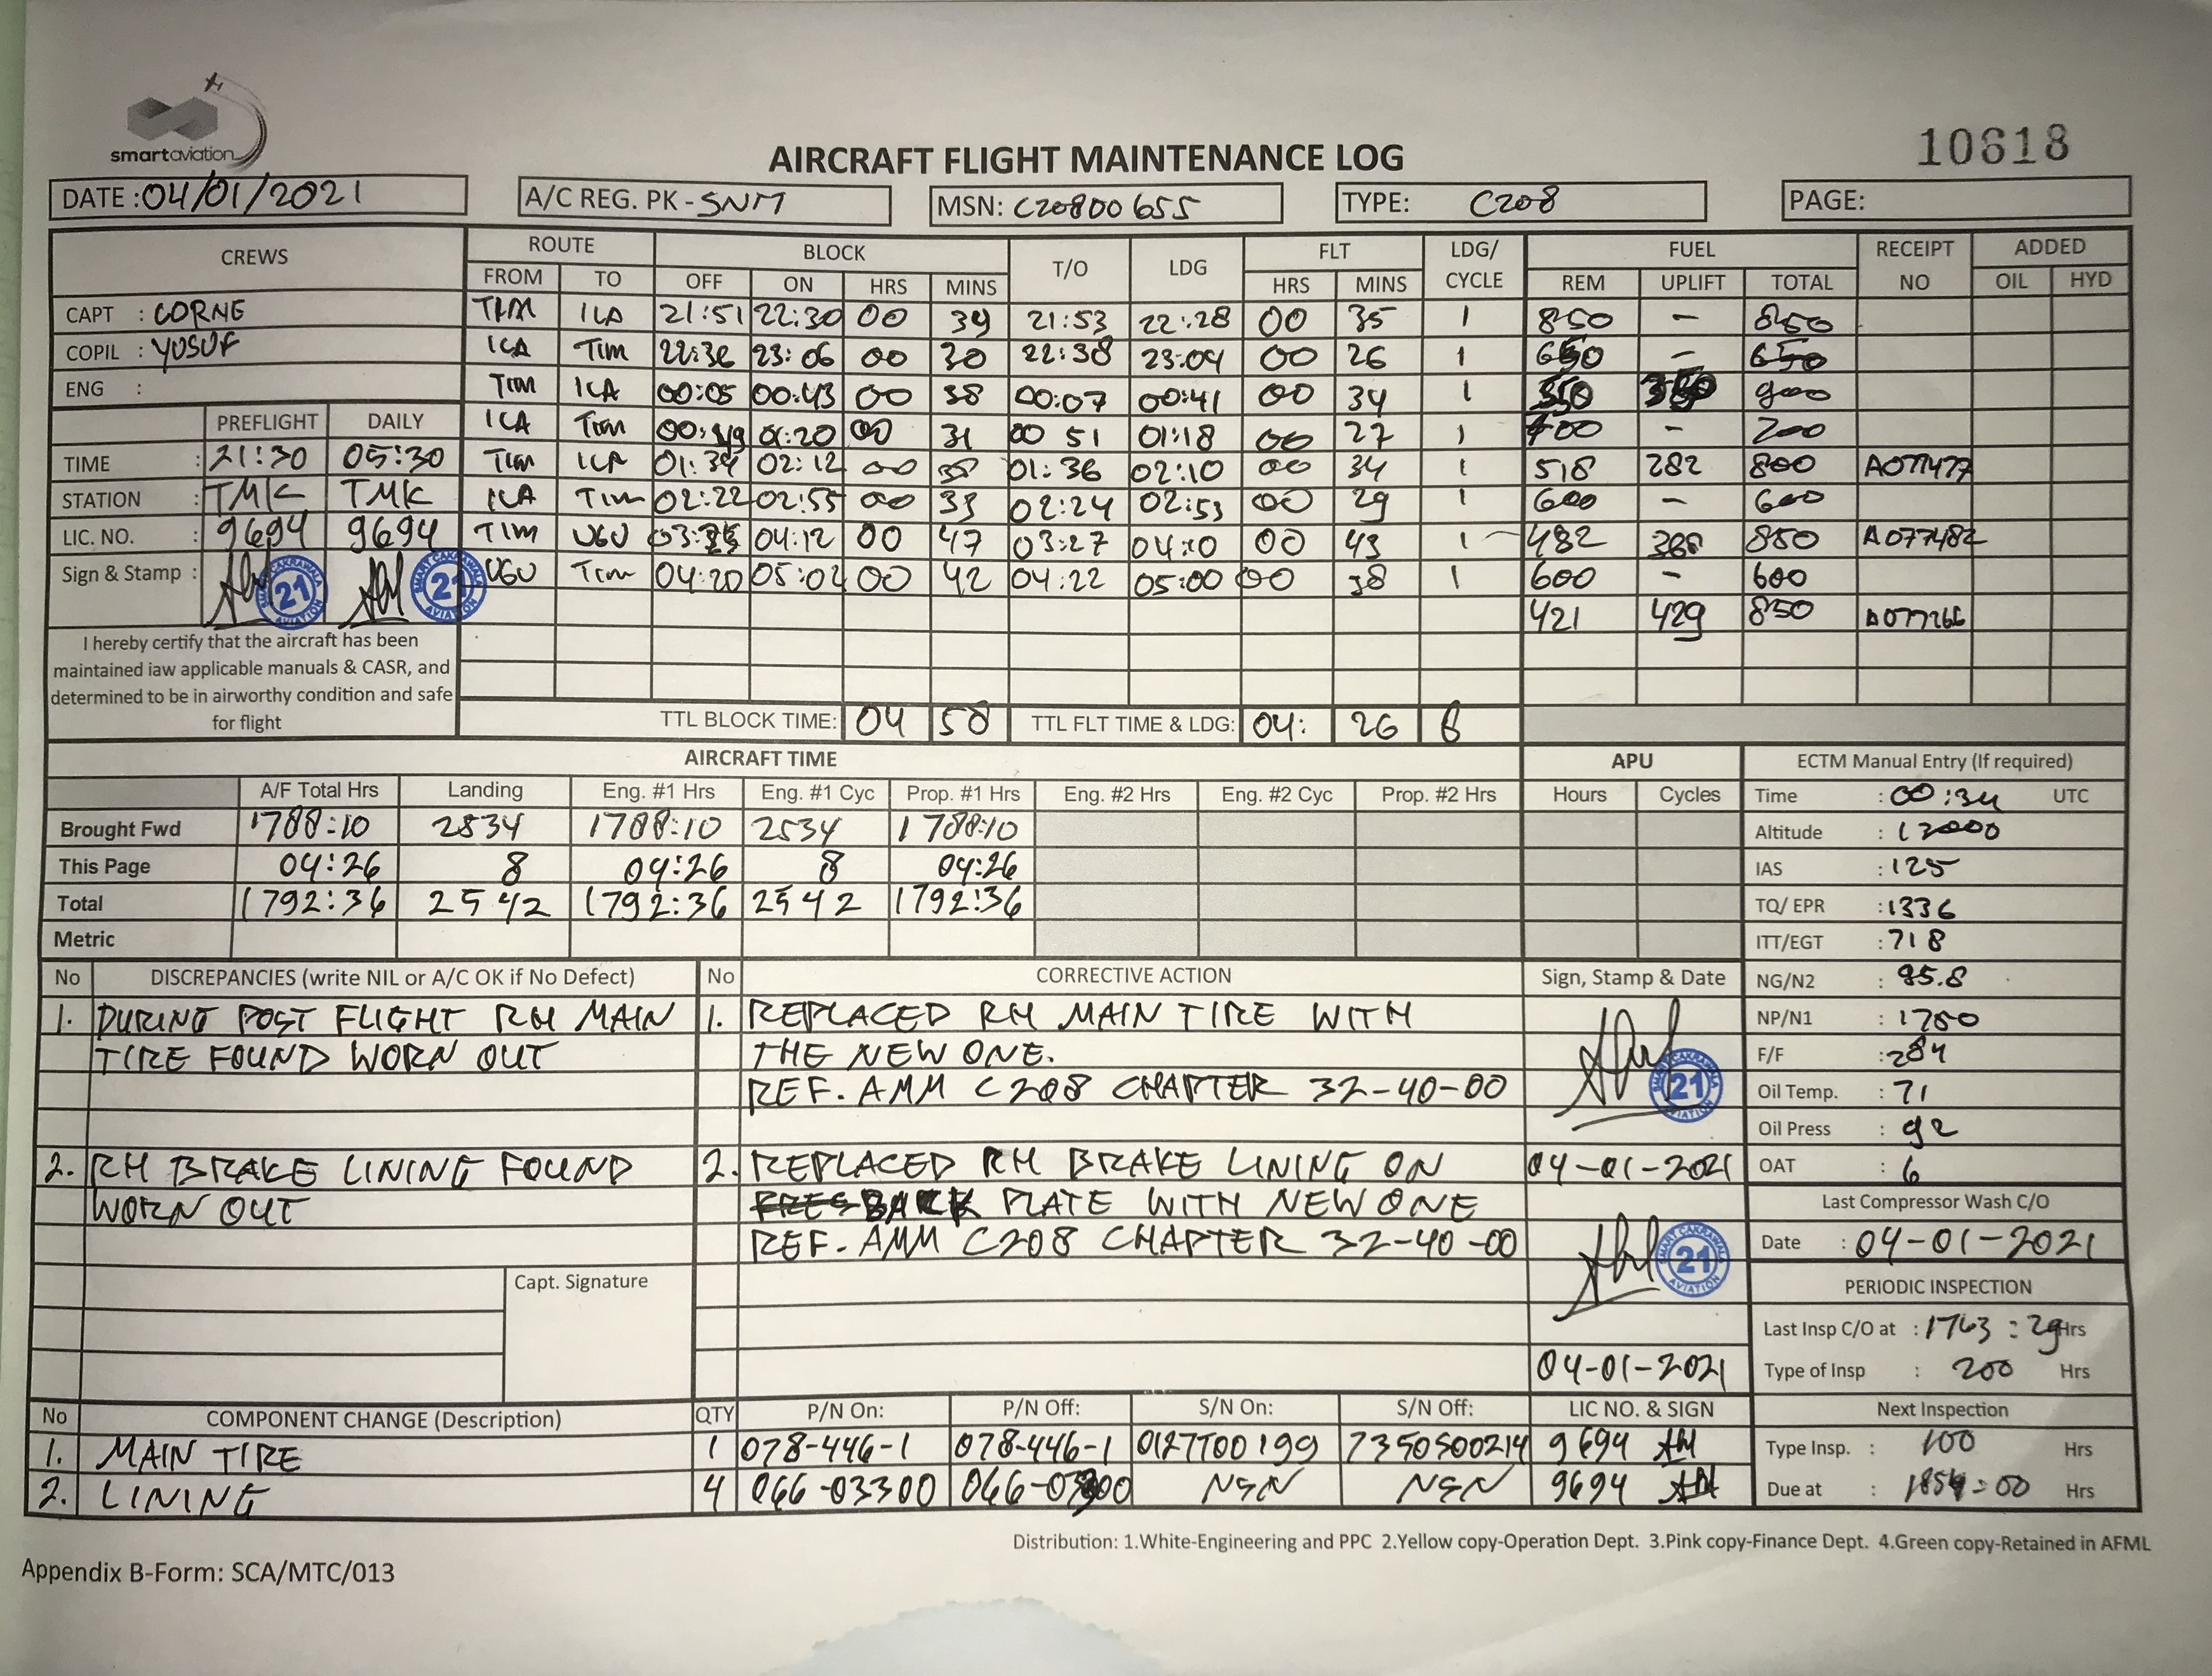 smartaviation
10618
AIRCRAFT FLIGHT MAINTENANCE LOG
DATE : 04/01/2021 A/C REG. PK - SNM MSN: C20800655 TYPE: C208 PAGE:
CREWS ROUTE BLOCK T/O LDG FLT LDG/ CYCLE FUEL RECEIPT NO ADDED
FROM TO OFF ON HRS MINS HRS MINS REM UPLIFT TOTAL OIL HYD
CAPT : CORNE TIM ILA 21:51 22:30 00 39 21:53 22:28 00 35 1 850 - 850
COPIL : YUSUF ILA TIM 22:36 23:06 00 30 22:38 23:04 00 26 1 650 - 650
ENG : TIM ILA 00:05 00:43 00 38 00:07 00:41 00 34 1 900
PREFLIGHT DAILY ILA TIM 00:49 01:20 00 31 00 51 01:18 00 27 1 - 700
TIME : 21:30 05:30 TIM ILA 01:34 02:12 00 38 01:36 02:10 00 34 1 518 282 800 A077477
STATION : TMK TMK ILA TIM 02:22 02:55 00 33 02:24 02:53 00 29 1 600 - 600
LIC. NO. : 9694 9694 TIM UGU 04:12 00 47 03:27 04:10 00 43 1 482 368 850 A077482
Sign & Stamp : 21 21 UGU TIM 04:20 05:02 00 42 04:22 05:00 00 38 1 600 - 600
421 429 850 A077266
I hereby certify that the aircraft has been
maintained iaw applicable manuals & CASR, and
determined to be in airworthy condition and safe
for flight
TTL BLOCK TIME: 04 58 TTL FLT TIME & LDG: 04: 26 8
AIRCRAFT TIME APU ECTM Manual Entry (If required)
A/F Total Hrs Landing Eng. #1 Hrs Eng. #1 Cyc Prop. #1 Hrs Eng. #2 Hrs Eng. #2 Cyc Prop. #2 Hrs Hours Cycles Time : 00:34 UTC
Brought Fwd 1788:10 2534 1788:10 2534 1788:10 Altitude : 12000
This Page 04:26 8 04:26 8 04:26 IAS : 125
Total 1792:36 2542 1792:36 2542 1792:36 TQ/ EPR : 1336
Metric ITT/EGT : 718
No DISCREPANCIES (write NIL or A/C OK if No Defect) No CORRECTIVE ACTION Sign, Stamp & Date NG/N2 : 95.8
1. DURING POST FLIGHT RH MAIN 1. REPLACED RH MAIN TIRE WITH NP/N1 : 1750
TIRE FOUND WORN OUT THE NEW ONE. F/F : 284
REF. AMM C208 CHAPTER 32-40-00 21 Oil Temp. : 71
Oil Press : 92
2. RH BRAKE LINING FOUND 2. REPLACED RH BRAKE LINING ON 04-01-2021 OAT : 6
WORN OUT BACK PLATE WITH NEW ONE Last Compressor Wash C/O
REF. AMM C208 CHAPTER 32-40-00 21 Date : 04-01-2021
Capt. Signature PERIODIC INSPECTION
Last Insp C/O at : 1763 : 29 Hrs
04-01-2021 Type of Insp : 200 Hrs
No COMPONENT CHANGE (Description) QTY P/N On: P/N Off: S/N On: S/N Off: LIC NO. & SIGN Next Inspection
1. MAIN TIRE 1 078-446-1 078-446-1 0127T00199 7350S00214 9694 Type Insp. : 100 Hrs
2. LINING 4 066-03300 066-03300 NSN NSN 9694 Due at : Hrs
Distribution: 1.White-Engineering and PPC 2.Yellow copy-Operation Dept. 3.Pink copy-Finance Dept. 4.Green copy-Retained in AFML
Appendix B-Form: SCA/MTC/013